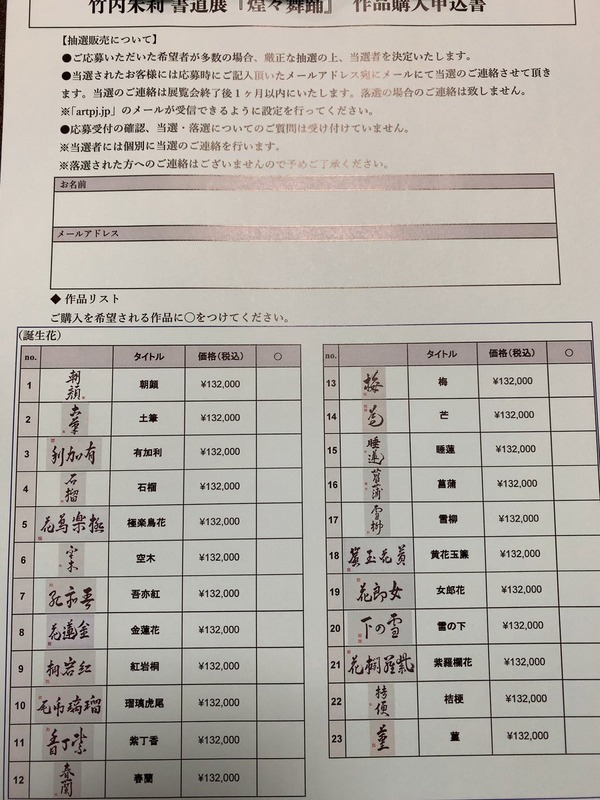 竹内朱莉 書道展『煌々舞踊』 作品購入申込書
【抽選販売について】
●ご応募いただいた希望者が多数の場合、厳正な抽選の上、当選者を決定いたします。
●当選されたお客様には応募時にご記入頂いたメールアドレス宛にメールにて当選のご連絡させて頂き
ます。当選のご連絡は展覧会終了後１ヶ月以内にいたします。落選の場合のご連絡は致しません。
※「artpj.jp」のメールが受信できるように設定を行ってください。
●応募受付の確認、当選・落選についてのご質問は受け付けていません。
※当選者には個別に当選のご連絡を行います。
※落選された方へのご連絡はございませんので予めご了承ください。
お名前
メールアドレス
◆ 作品リスト
ご購入を希望される作品に〇をつけてください。
(誕生花)
no. タイトル 価格（税込） 〇
1 朝顔 朝顔 ¥132,000
2 土筆 土筆 ¥132,000
3 利加有 有加利 ¥132,000
4 石榴 石榴 ¥132,000
5 花鳥楽極 極楽鳥花 ¥132,000
6 空木 空木 ¥132,000
7 紅亦吾 吾亦紅 ¥132,000
8 花蓮金 金蓮花 ¥132,000
9 桐岩紅 紅岩桐 ¥132,000
10 尾虎璃瑠 瑠璃虎尾 ¥132,000
11 香丁紫 紫丁香 ¥132,000
12 春蘭 春蘭 ¥132,000
no. タイトル 価格（税込） 〇
13 梅 梅 ¥132,000
14 芒 芒 ¥132,000
15 睡蓮 睡蓮 ¥132,000
16 菖蒲 菖蒲 ¥132,000
17 雪柳 雪柳 ¥132,000
18 簾玉花黄 黄花玉簾 ¥132,000
19 花郎女 女郎花 ¥132,000
20 下の雪 雪の下 ¥132,000
21 花欄羅紫 紫羅欄花 ¥132,000
22 桔梗 桔梗 ¥132,000
23 菫 菫 ¥132,000